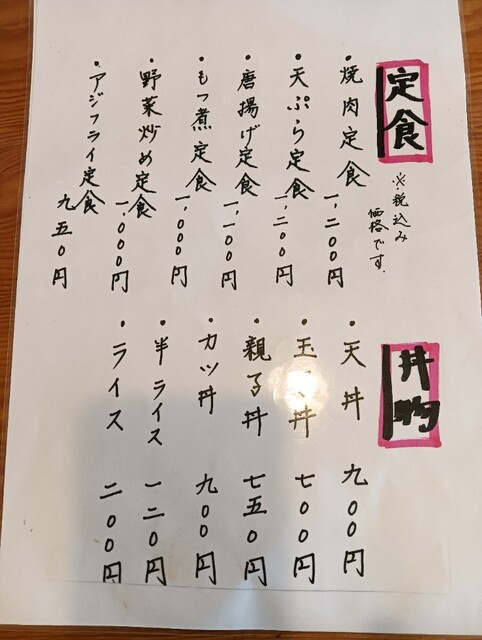 定食
※税込み
価格です.
・焼肉定食 一、二〇〇円
・天ぷら定食 一、二〇〇円
・唐揚げ定食 一、一〇〇円
・もつ煮定食 一、〇〇〇円
・野菜炒め定食 一、〇〇〇円
・アジフライ定食 九五〇円
丼物
・天丼 九〇〇円
・玉子丼 七〇〇円
・親子丼 七五〇円
・カツ丼 九〇〇円
・半ライス 一二〇円
・ライス 二〇〇円